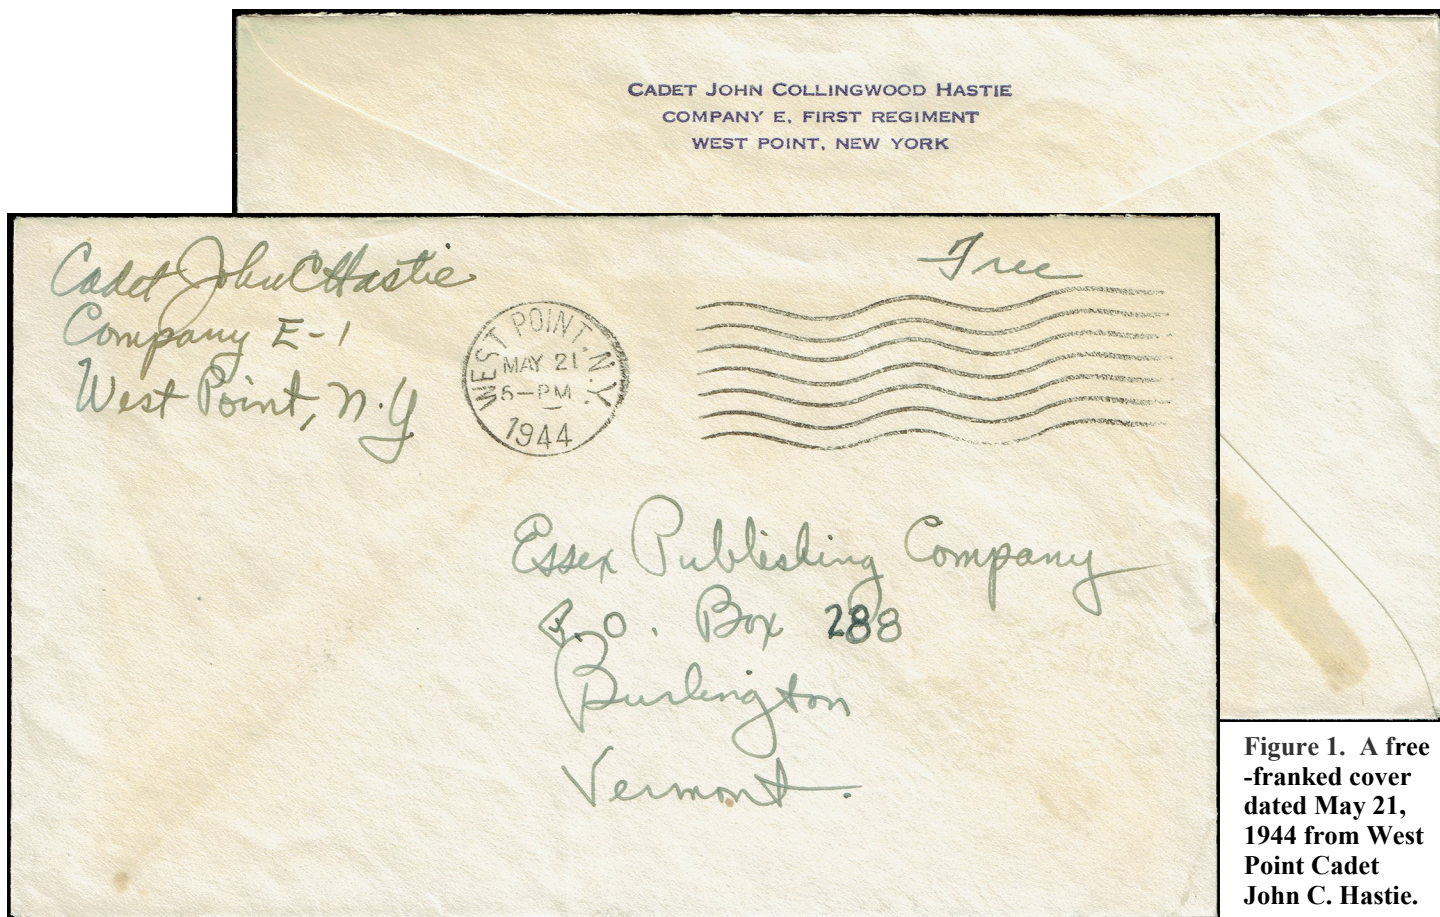 CADET JOHN COLLINGWOOD HASTIE
COMPANY E, FIRST REGIMENT
WEST POINT, NEW YORK
Cadet John C Hastie
Company E-1
West Point, N.Y
Free
WEST POINT, N.Y.
MAY 21
5-PM
1944
Essex Publishing Company
P.O. Box 288
Burlington
Vermont.
Figure 1. A free
-franked cover
dated May 21,
1944 from West
Point Cadet
John C. Hastie.